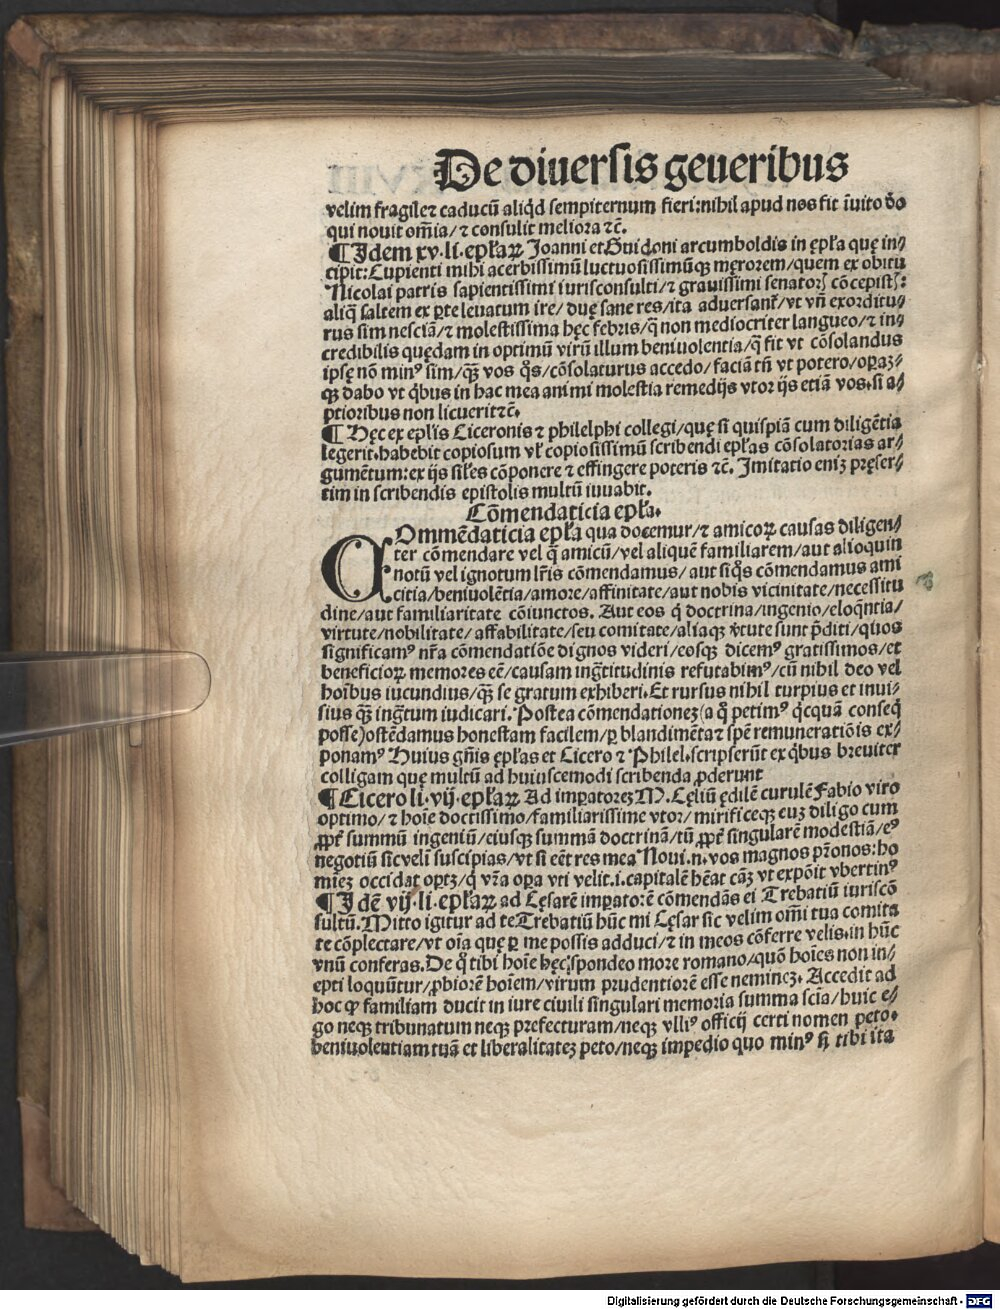 De diuersis geueribus
velim fragilez caducū aliq̄d sempiternum fieri: nihil apud nos fit īuito do
qui nouit om̄ia/ ⁊ consulit meliora ⁊c̄.
¶ Idem xv. li. ep̄laꝝ Joanni et Guidoni arcumboldis in ep̄la quę in⸗
cipit: Cupienti mihi acerbissimū luctuosissimūqꝫ męrorem/ quem ex obitu
Nicolai patris sapientissimi iurisconsulti/ ⁊ grauissimi senatorꝭ cōcepistꝭ:
aliq̄ saltem ex ꝑte leuatum ire/ duę sane res/ ita aduersant᷑/ vt vn̄ exorditu⸗
rus sim nesciā/ ⁊ molestissima hęc febris/ q̄ non mediocriter langueo/ ⁊ in⸗
credibilis quędam in optimū virū illum beniuolentia/ q̄ fit vt cōsolandus
ipsę nō minꝰ sim/ qꝫ vos q̄s/ cōsolaturus accedo/ faciā tn̄ vt potero/ oꝑaꝫ⸗
qꝫ dabo vt q̄bus in hac mea animi molestia remedijs vtor ijs etiā vos. si a⸗
ptioribus non licuerit ⁊c̄.
¶ Hęc ex ep̄lis Ciceronis ⁊ philelphi collegi/ quę si quispiā cum diligētia
legerit. habebit copiosum vl̄ copiosissimū scribendi ep̄las cōsolatorias ar⸗
gumētum: ex ijs sil̄es cōponere ⁊ effingere poteris ⁊c̄. Imitatio eniꝫ pręser⸗
tim in scribendis epistolis multū iuuabit.
Cōmendaticia ep̄la.
COmmēdaticia ep̄la qua docemur/ ⁊ amicoꝝ causas diligen⸗
ter cōmendare vel q̄ amicū/ vel aliquē familiarem/ aut alioquin
notū vel ignotum lr̄is cōmendamus/ aut siq̄s cōmendamus ami
citia/ beniuolētia/ amore/ affinitate/ aut nobis vicinitate/ necessitu
dine/ aut familiaritate cōiunctos. Aut eos q̄ doctrina/ ingenio/ eloq̄ntia/
virtute/ nobilitate/ affabilitate/ seu comitate/ aliaqꝫ v̄tute sunt p̄diti/ quos
significamꝰ nr̄a cōmendatiōe dignos videri/ eosqꝫ dicemꝰ gratissimos/ et
beneficioꝝ memores eē/ causam ingr̄titudinis refutabimꝰ/ cū nihil deo vel
hoībus iucundius/ qꝫ se gratum exhiberi. Et rursus nihil turpius et inui⸗
sius qꝫ ingr̄tum iudicari. Postea cōmendationeꝫ (a q̄ petimꝰ q̄cquā conseq̄
posse) ostēdamus honestam facilem/ ꝑ blandimēta ⁊ spē remunerationis ex⸗
ponamꝰ Huius gn̄is ep̄las et Cicero ⁊ Philel. scripserūt ex q̄bus breuiter
colligam quę multū ad huiuscemodi scribenda ꝓderunt
¶ Cicero li. vij. ep̄laꝝ Ad imꝑatoreꝫ M. Cęliū ędilē curulē Fabio viro
optimo/ ⁊ hoīe doctissimo/ familiarissime vtor/ mirificeqꝫ euꝫ diligo cum
ꝓpt᷑ summū ingeniū/ eiusqꝫ summā doctrinā/ tū ꝓpt᷑ singularē modestiā/ eꝰ
negotiū sic velī suscipias/ vt si eēt res mea Noui. n. vos magnos pr̄onos: ho
mieꝫ occidat oꝑtꝫ/ q̄ vr̄a oꝑa vti velit. i. capitalē hēat cāꝫ vt expōit vbertinꝰ
¶ Idē vij. li. ep̄laꝝ ad Cęsarē imꝑatorē cōmendās ei Trebatiū iuriscō
sultū. Mitto igitur ad te Trebatiū hūc mi Cęsar sic velim om̄i tua comita
te cōplectare/ vt oīa quę ꝑ me possis adduci/ ⁊ in meos cōferre velis. in hūc
vnū conferas. De q̄ tibi hoīe hęc spondeo more romano/ quō hoīes non in⸗
epti loquūtur/ ꝓbiorē hoīem/ virum prudentiorē esse nemineꝫ. Accedit ad
hoc ꝙ familiam ducit in iure ciuili singulari memoria summa scīa/ huic e⸗
go neqꝫ tribunatum neqꝫ prefecturam/ neqꝫ vlliꝰ officij certi nomen peto.
beniuolentiam tuā et liberalitateꝫ peto/ neqꝫ impedio quo minꝰ si tibi ita
Digitalisierung gefördert durch die Deutsche Forschungsgemeinschaft - DFG